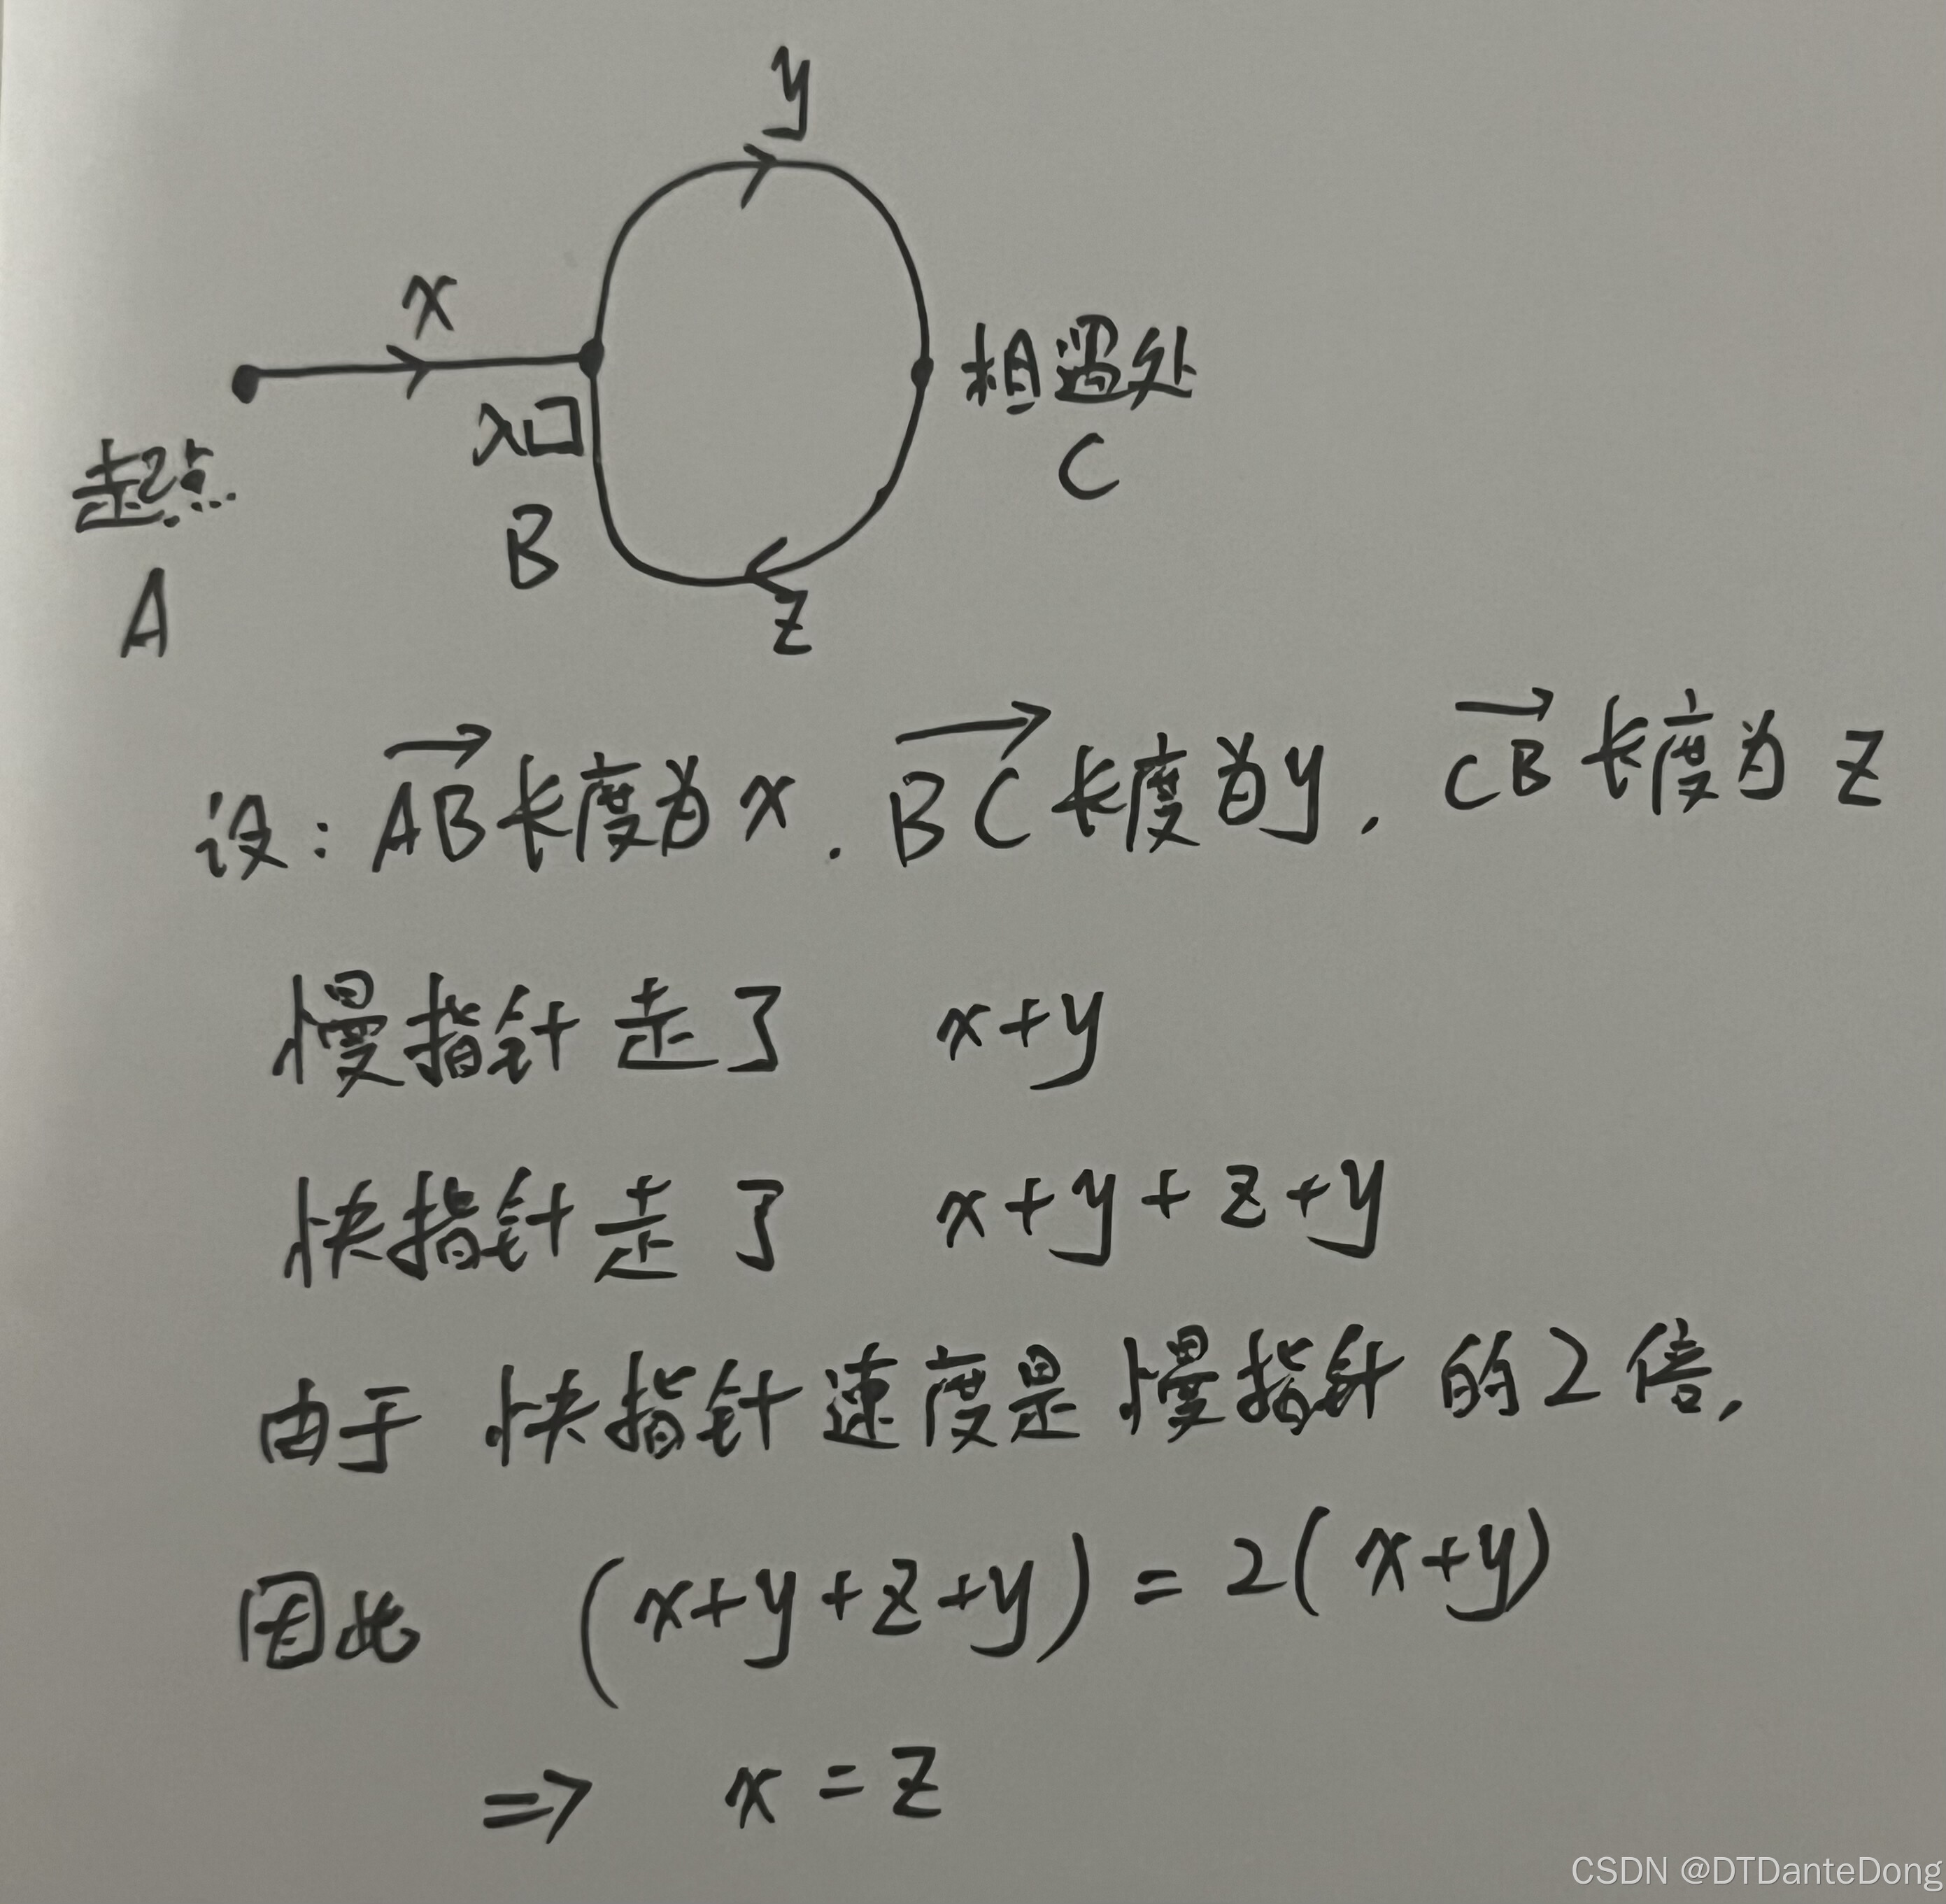 y
x
相遇处
C
入口
B
起点
A
z
设: AB长度为x. BC长度为y, CB长度为z
慢指针走了 x+y
快指针走了 x+y+z+y
由于快指针速度是慢指针的2倍,
因此 (x+y+z+y) = 2(x+y)
⇒ x = z
CSDN @DTDanteDong